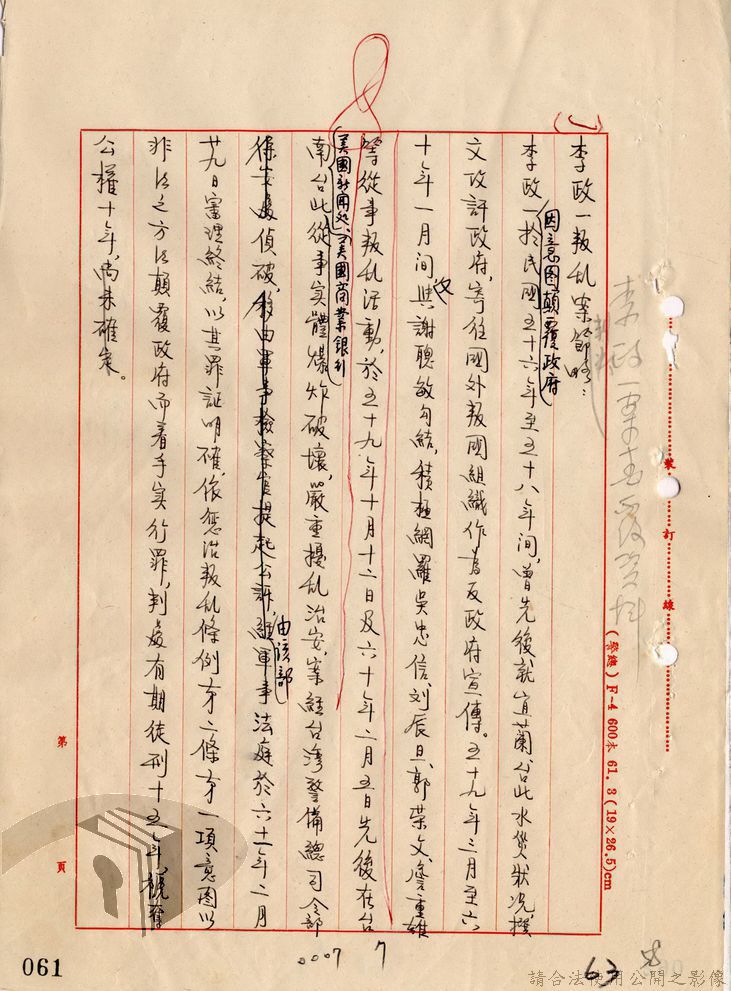 (一)
李政一叛乱案節略：
因意图顛覆政府
李政一於民國五十六年至五十八年间，曾先後就宜蘭台北水災狀況，撰
文攻訐政府，寄往國外叛國組織作為反政府宣傳。五十九年三月至六
十年一月间與謝聰敏勾結，積極網羅吳忠信、刘辰旦、郭荣文、詹重雄
等從事叛乱活動，於五十九年十月十二日及六十年二月五日先後在台
美國新聞処、美國商業銀行
南台北從事实體爆炸破壞，嚴重擾乱治安，案經台湾警備總司令部
保安處偵破，移由軍事檢察官提起公訴，經軍事法庭於六十一年二月
由該部
廿九日審理終結，以其罪証明確，依惩治叛乱條例第二條第一項意图以
非法之方法顛覆政府而着手实行罪，判處有期徒刑十五年，褫奪
公權十年，尚未確定。
李政一案
裝訂線
(警總) F-4 600本 61. 3 (19×26.5)cm
第 頁
061
0007
7
63
請合法使用公開之影像